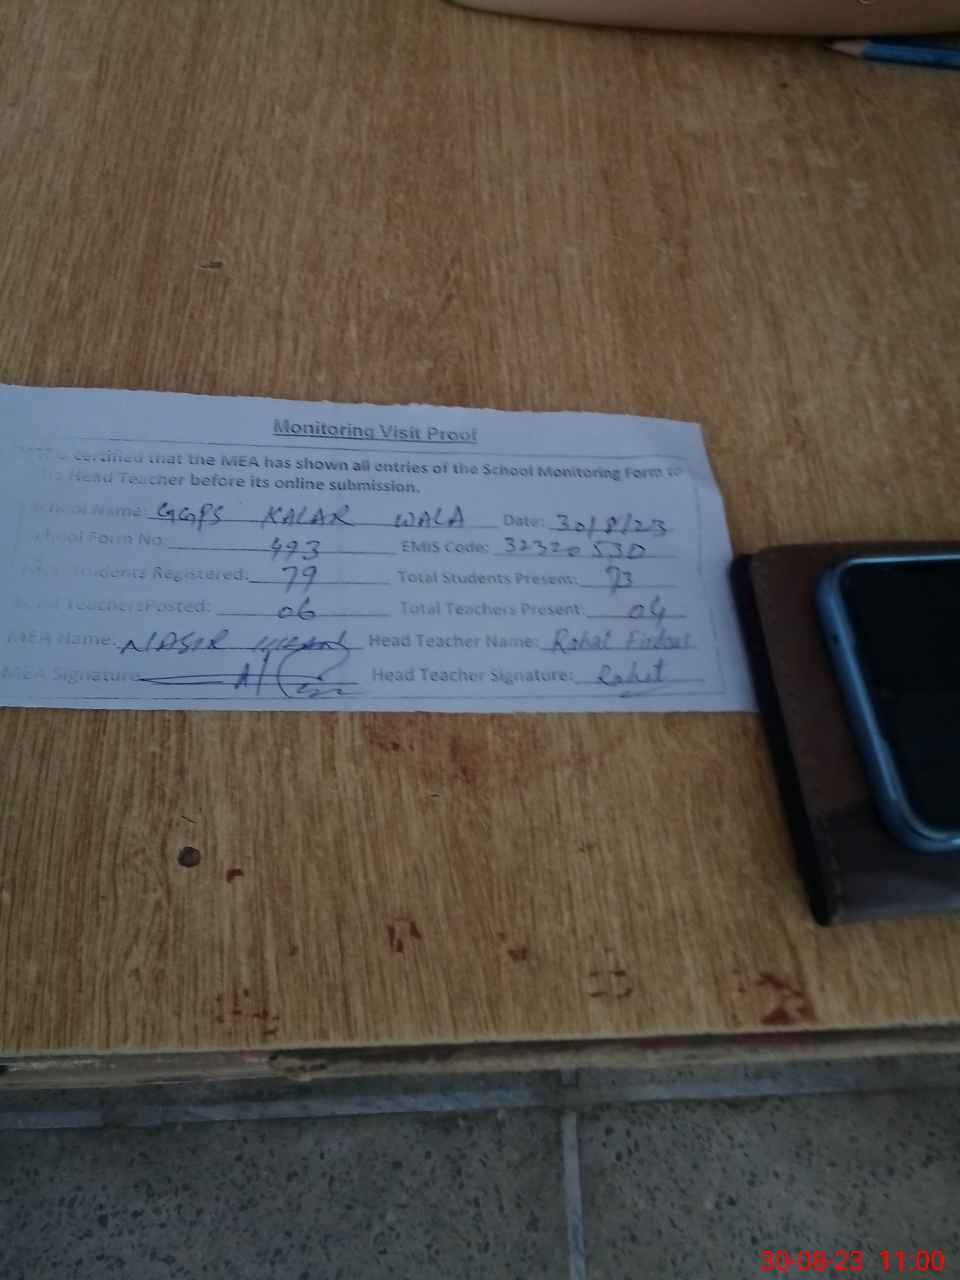 Monitoring Visit Proof
is certified that the MEA has shown all entries of the School Monitoring Form to
Head Teacher before its online submission.
School Name: GGPS KALAR WALA Date: 30/8/23
School Form No: 493 EMIS Code: 32320530
Students Registered: 79 Total Students Present: 73
Teachers Posted: 06 Total Teachers Present: 04
MEA Name: NASIR Head Teacher Name: Rahat Firdous
MEA Signature Head Teacher Signature: Rahat
30-08-23 11:00